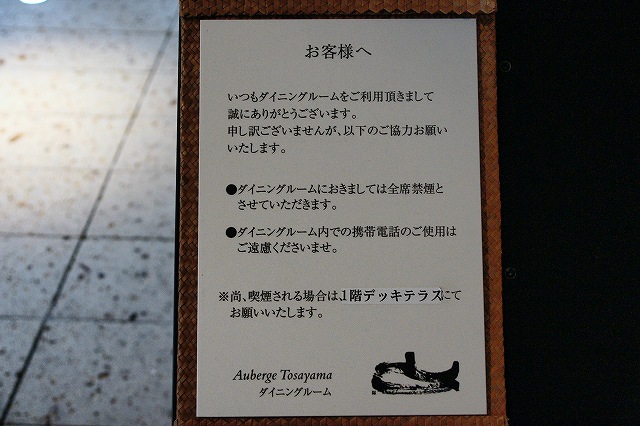 お客様へ
いつもダイニングルームをご利用頂きまして
誠にありがとうございます。
申し訳ございませんが、以下のご協力お願い
いたします。
●ダイニングルームにおきましては全席禁煙と
させていただきます。
●ダイニングルーム内での携帯電話のご使用は
ご遠慮くださいませ。
※尚、喫煙される場合は、1階デッキテラスにて
お願いいたします。
Auberge Tosayama
ダイニングルーム